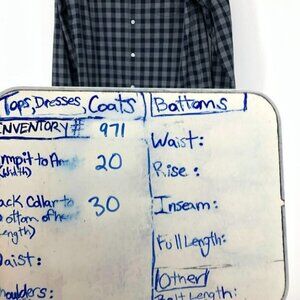 Tops, Dresses, Coats
INVENTORY# 971
mpit to Ar
(width) 20
ack Collar to
ottom of he
ength) 30
aist:
houlders:
Bottoms
Waist:
Rise:
Inseam:
Full Length:
Other
Belt Length: